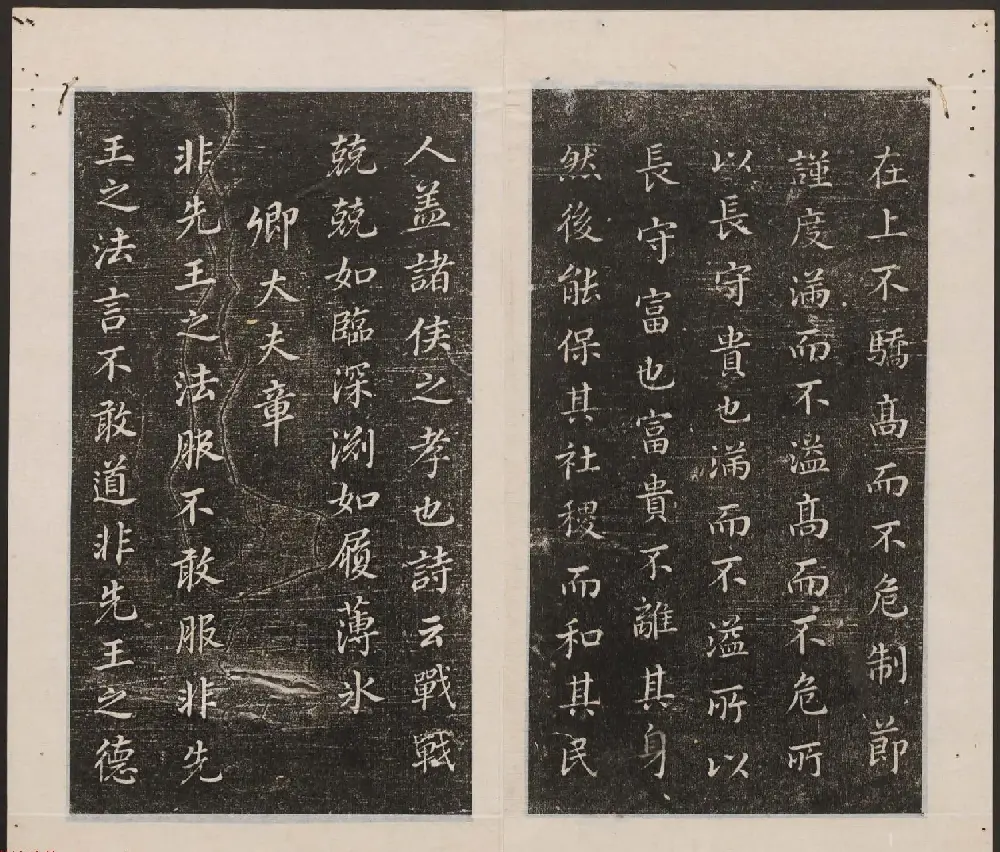 在上不驕髙而不危制節
謹度滿而不溢髙而不危所
以長守貴也滿而不溢所以
長守富也富貴不離其身
然後能保其社稷而和其民
人盖諸侯之孝也詩云戰戰
兢兢如臨深渕如履薄氷
卿大夫章
非先王之法服不敢服非先
王之法言不敢道非先王之德